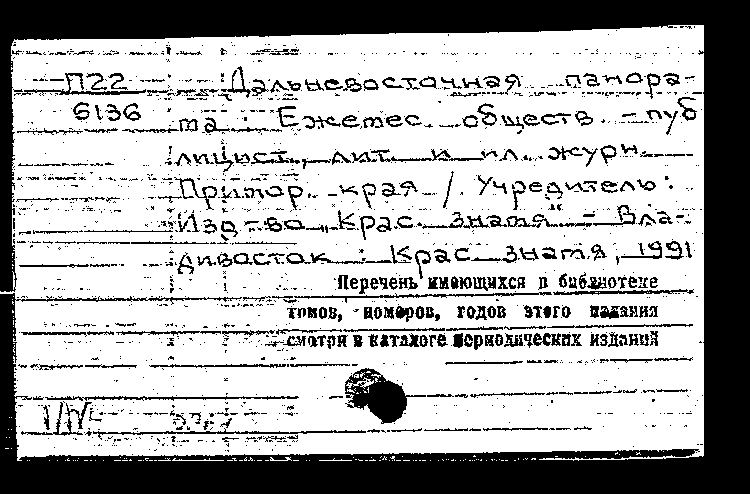 П22 Дальневосточная панора-
6136 ма : Ежемес. обществ. - пуб
лицист., лит. и ил. журн.
Примор. края / Учредитель:
Изд-во „Крас. знамя“ - Вла-
дивосток : Крас. знамя, 1991
Перечень имеющихся в библиотеке
томов, номеров, годов этого издания
смотри в каталоге периодических изданий